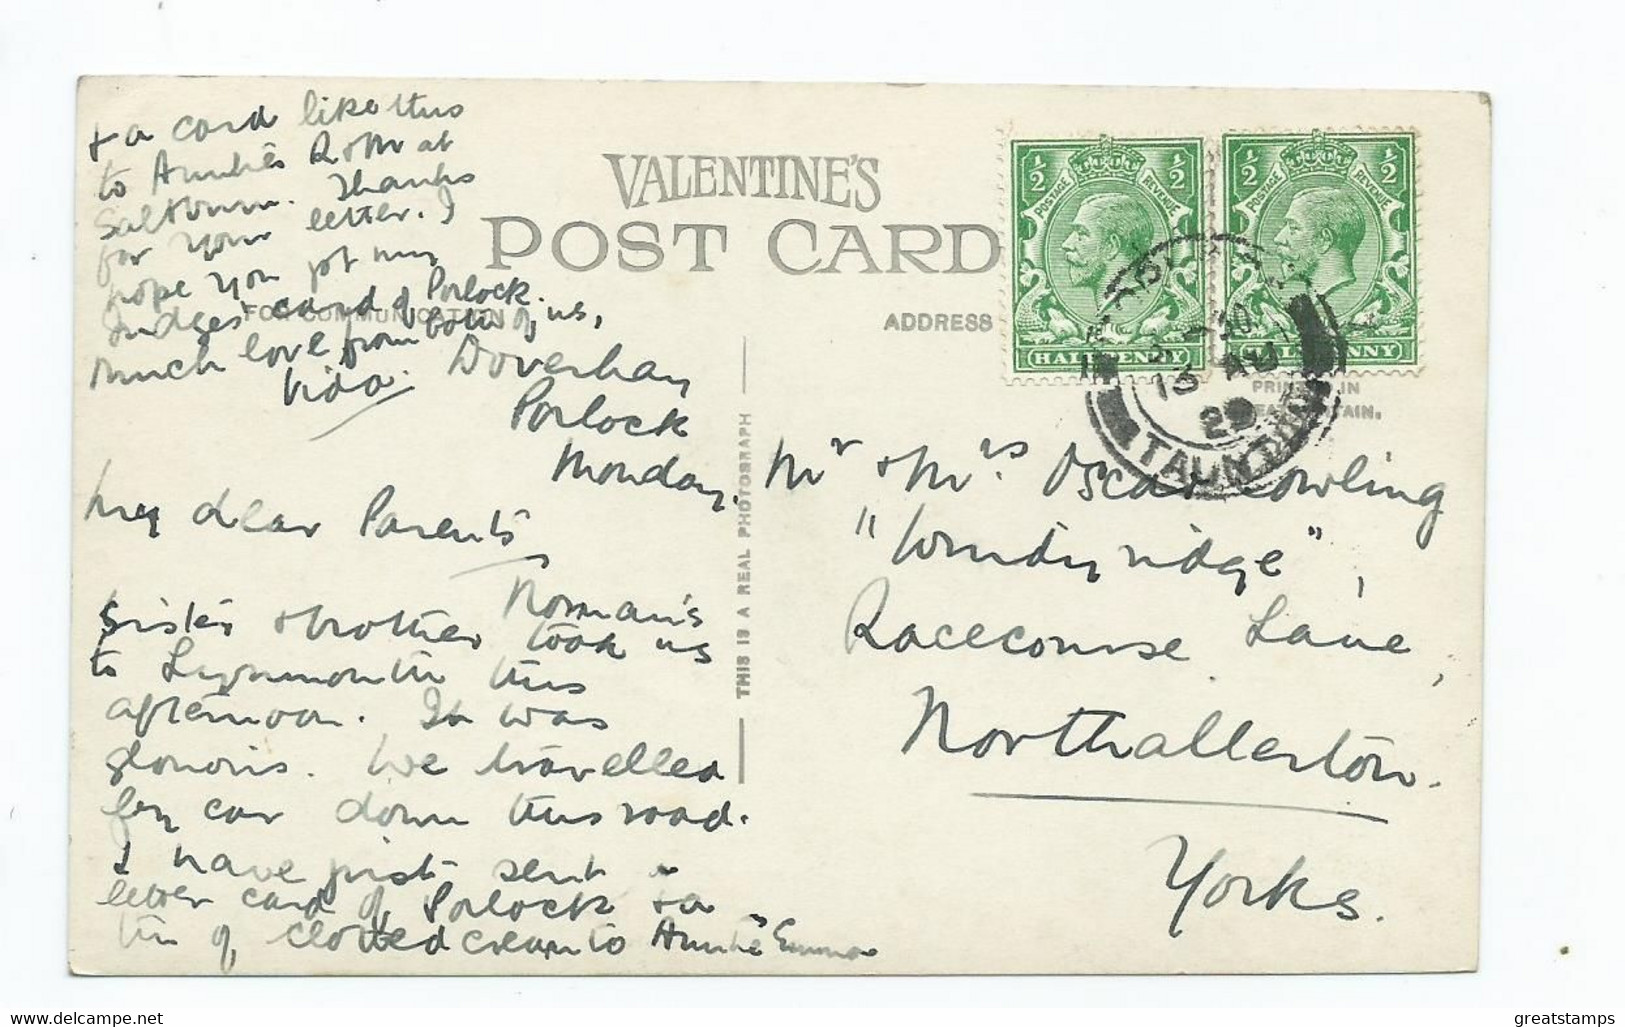 VALENTINE'S
POST CARD
FOR COMMUNICATION
ADDRESS
½ ½
POSTAGE REVENUE
HALFPENNY
½ ½
POSTAGE REVENUE
HALFPENNY
PRINTED IN
GREAT BRITAIN.
13 AU
29
TAUNTON
THIS IS A REAL PHOTOGRAPH
Doverhay
Porlock
Monday.
My dear Parents,
Norman's
sister & brother took us
to Lynmouth this
afternoon. It was
glorious. We travelled
by car down this road.
I have just sent a
letter card of Porlock & a
tin of clotted cream to Auntie Emma
& a card like this
to Auntie's R & M at
Saltburn. Thanks
for your letter. I
hope you got my
Judges card of Porlock.
Much love from both of us,
Vida.
Mr & Mrs Oscar Cowling
"Windyridge",
Racecourse Lane,
Northallerton.
Yorks.
delcampe.net
greatstamps